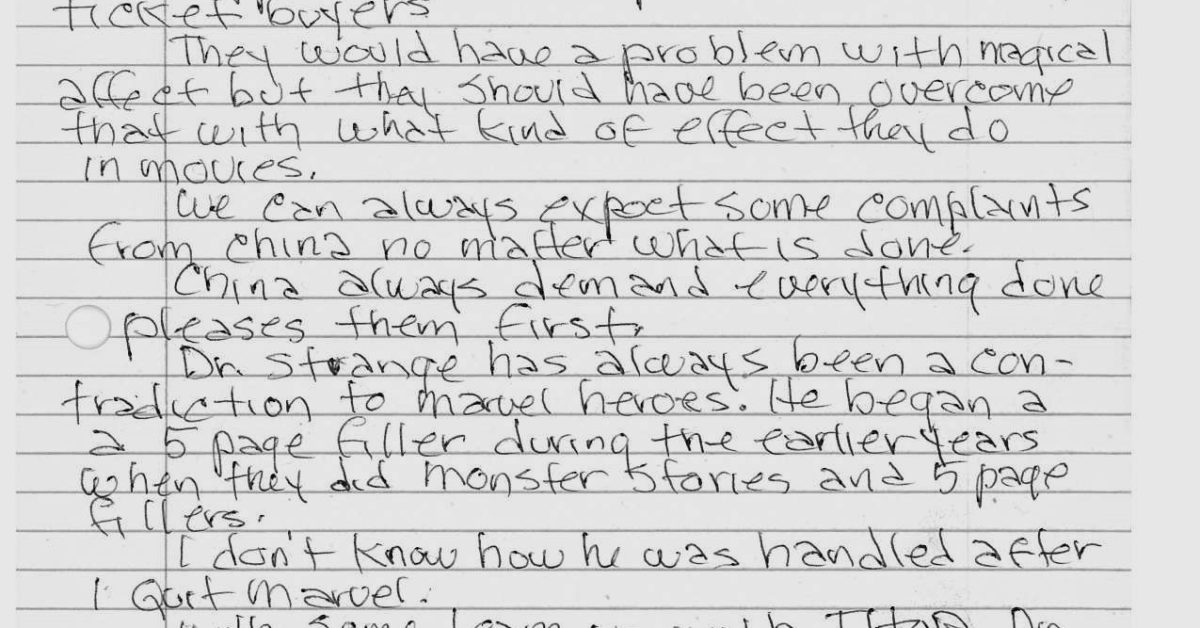 ticket buyers
They would have a problem with magical
affect but they should have been overcome
that with what kind of effect they do
in movies.
We can always expect some complaints
from China no matter what is done.
China always demand everything done
pleases them first.
Dr. Strange has always been a con-
tradiction to marvel heroes. He began a
a 5 page filler during the earlier years
when they did monster stories and 5 page
fillers.
I don't know how he was handled after
I Quit marvel.
some